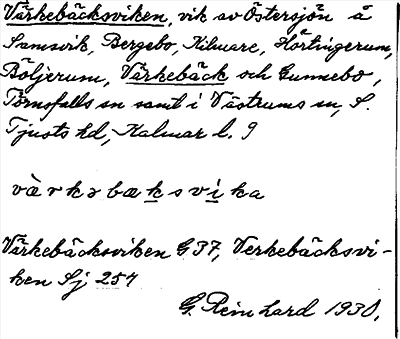 Värkebäcksviken, vik av Östersjön å
Samsvik, Bergebo, Kilmare, Hörtingerum,
Böljerum, Värkebäck och Gunnebo,
Törnsfalls sn samt i Västrums sn, S.
Tjusts hd, Kalmar l. 9
værkəbæksvika
Värkebäcksviken G 37, Verkebäcksvi-
ken Sj 257
G. Reinhard 1930.